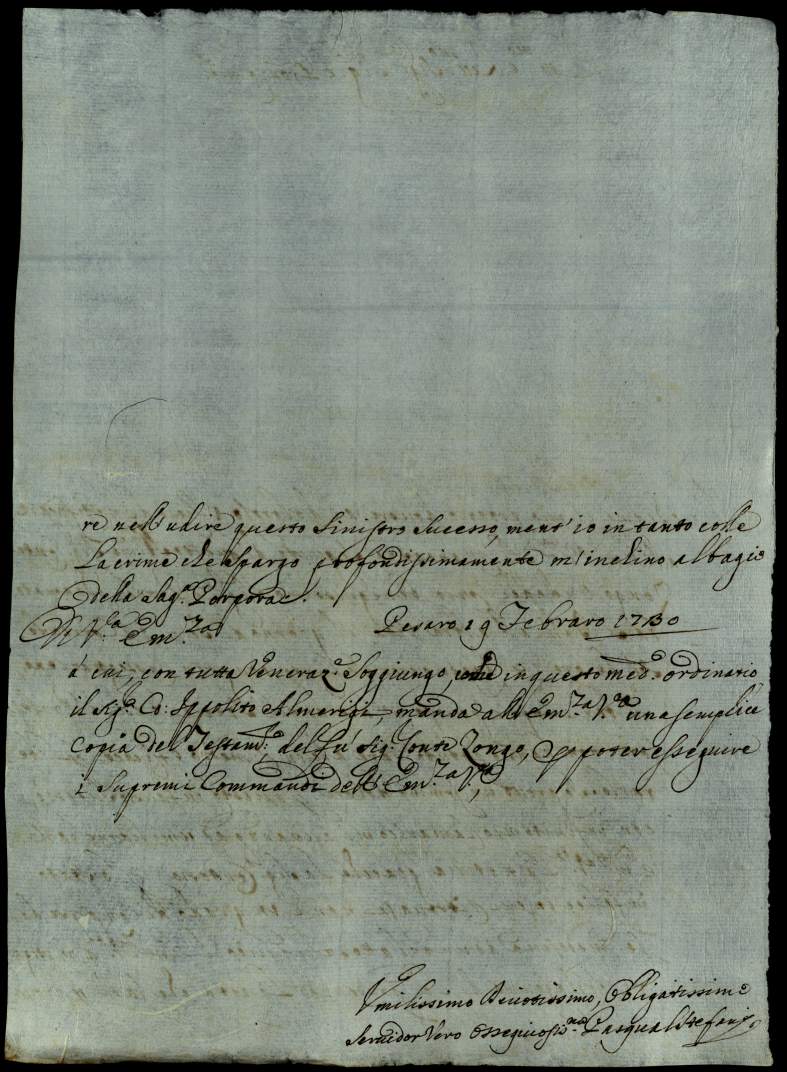 re nell'udire questo Sinistro Sucesso, ment'io in tanto colle
Lacrime che spargo profondissimamente m'inchino al bagio
della Sag.ª Porpora
Di V.ª Em.za Pesaro 19 Febraro 1730
à cui, con tutta Veneraz.e Soggiungo, come in questo med.o ordinario
il Sig.r Co: Ippolito Almerigi, manda all'Em.za V.ra una semplice
Copia del Testam.to del fù Sig.r Conte Zongo, per poter esseguire
i Supremi Commandi dell'Em.za V.ra
Vmilissimo Deuotissimo, Obligatissimo
Seruidor Vero Ossequiosis.mo Pasqual Stefani